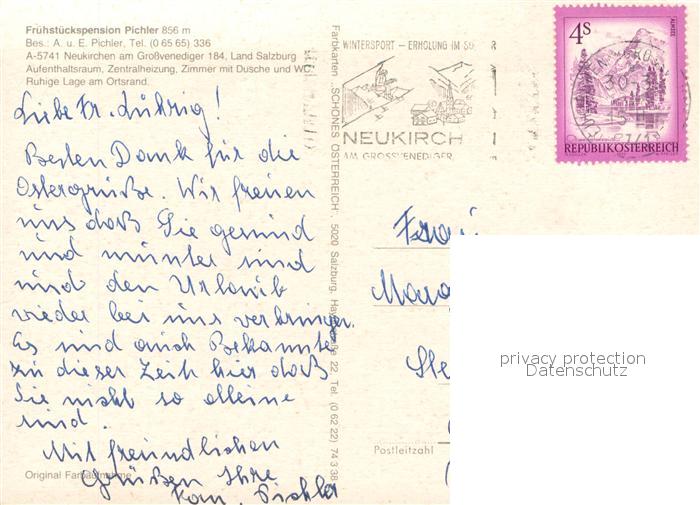 Frühstückspension Pichler 856 m
Bes.: A. u. E. Pichler, Tel. (0 65 65) 336
A-5741 Neukirchen am Großvenediger 184, Land Salzburg
Aufenthaltsraum, Zentralheizung, Zimmer mit Dusche und WC,
Ruhige Lage am Ortsrand.
Liebe Fr. Lührig!
Besten Dank für die
Ostergrüße. Wir freuen
uns daß Sie gesund
und munter sind
und den Urlaub
wieder bei uns verbringen.
Es sind auch Bekannte
zu dieser Zeit hier daß
Sie nicht so alleine
sind.
Mit freundlichen
Grüßen Ihre
Fam. Pichler
Original Farbaufnahme
Farbkarten „SCHÖNES ÖSTERREICH" 5020 Salzburg, Tel. (0 62 22) 74 3 38
WINTERSPORT – ERHOLUNG IM SO
NEUKIRCH
AM GROSSVENEDIGER
4S
ALMSEE
REPUBLIK ÖSTERREICH
Frau
Postleitzahl
privacy protection
Datenschutz